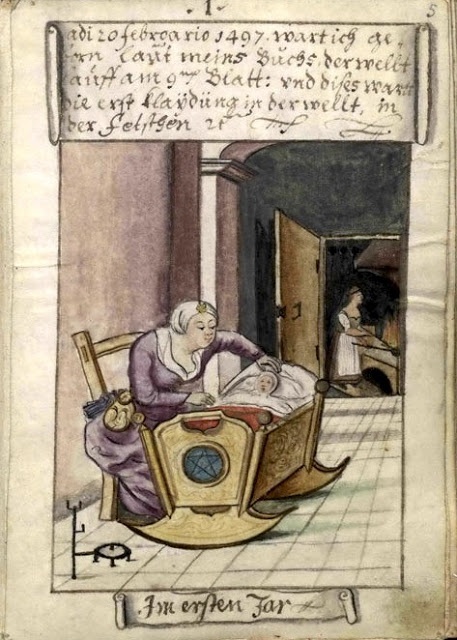 1
5
adi 20 febroario 1497. wart ich ge
orn laut meins Buchs, der wellt
auff am 9ᵗᵉⁿ Blatt: vnd dises wardt
die erst klaydung in der wellt, in
der Fetschen
Im ersten Jar